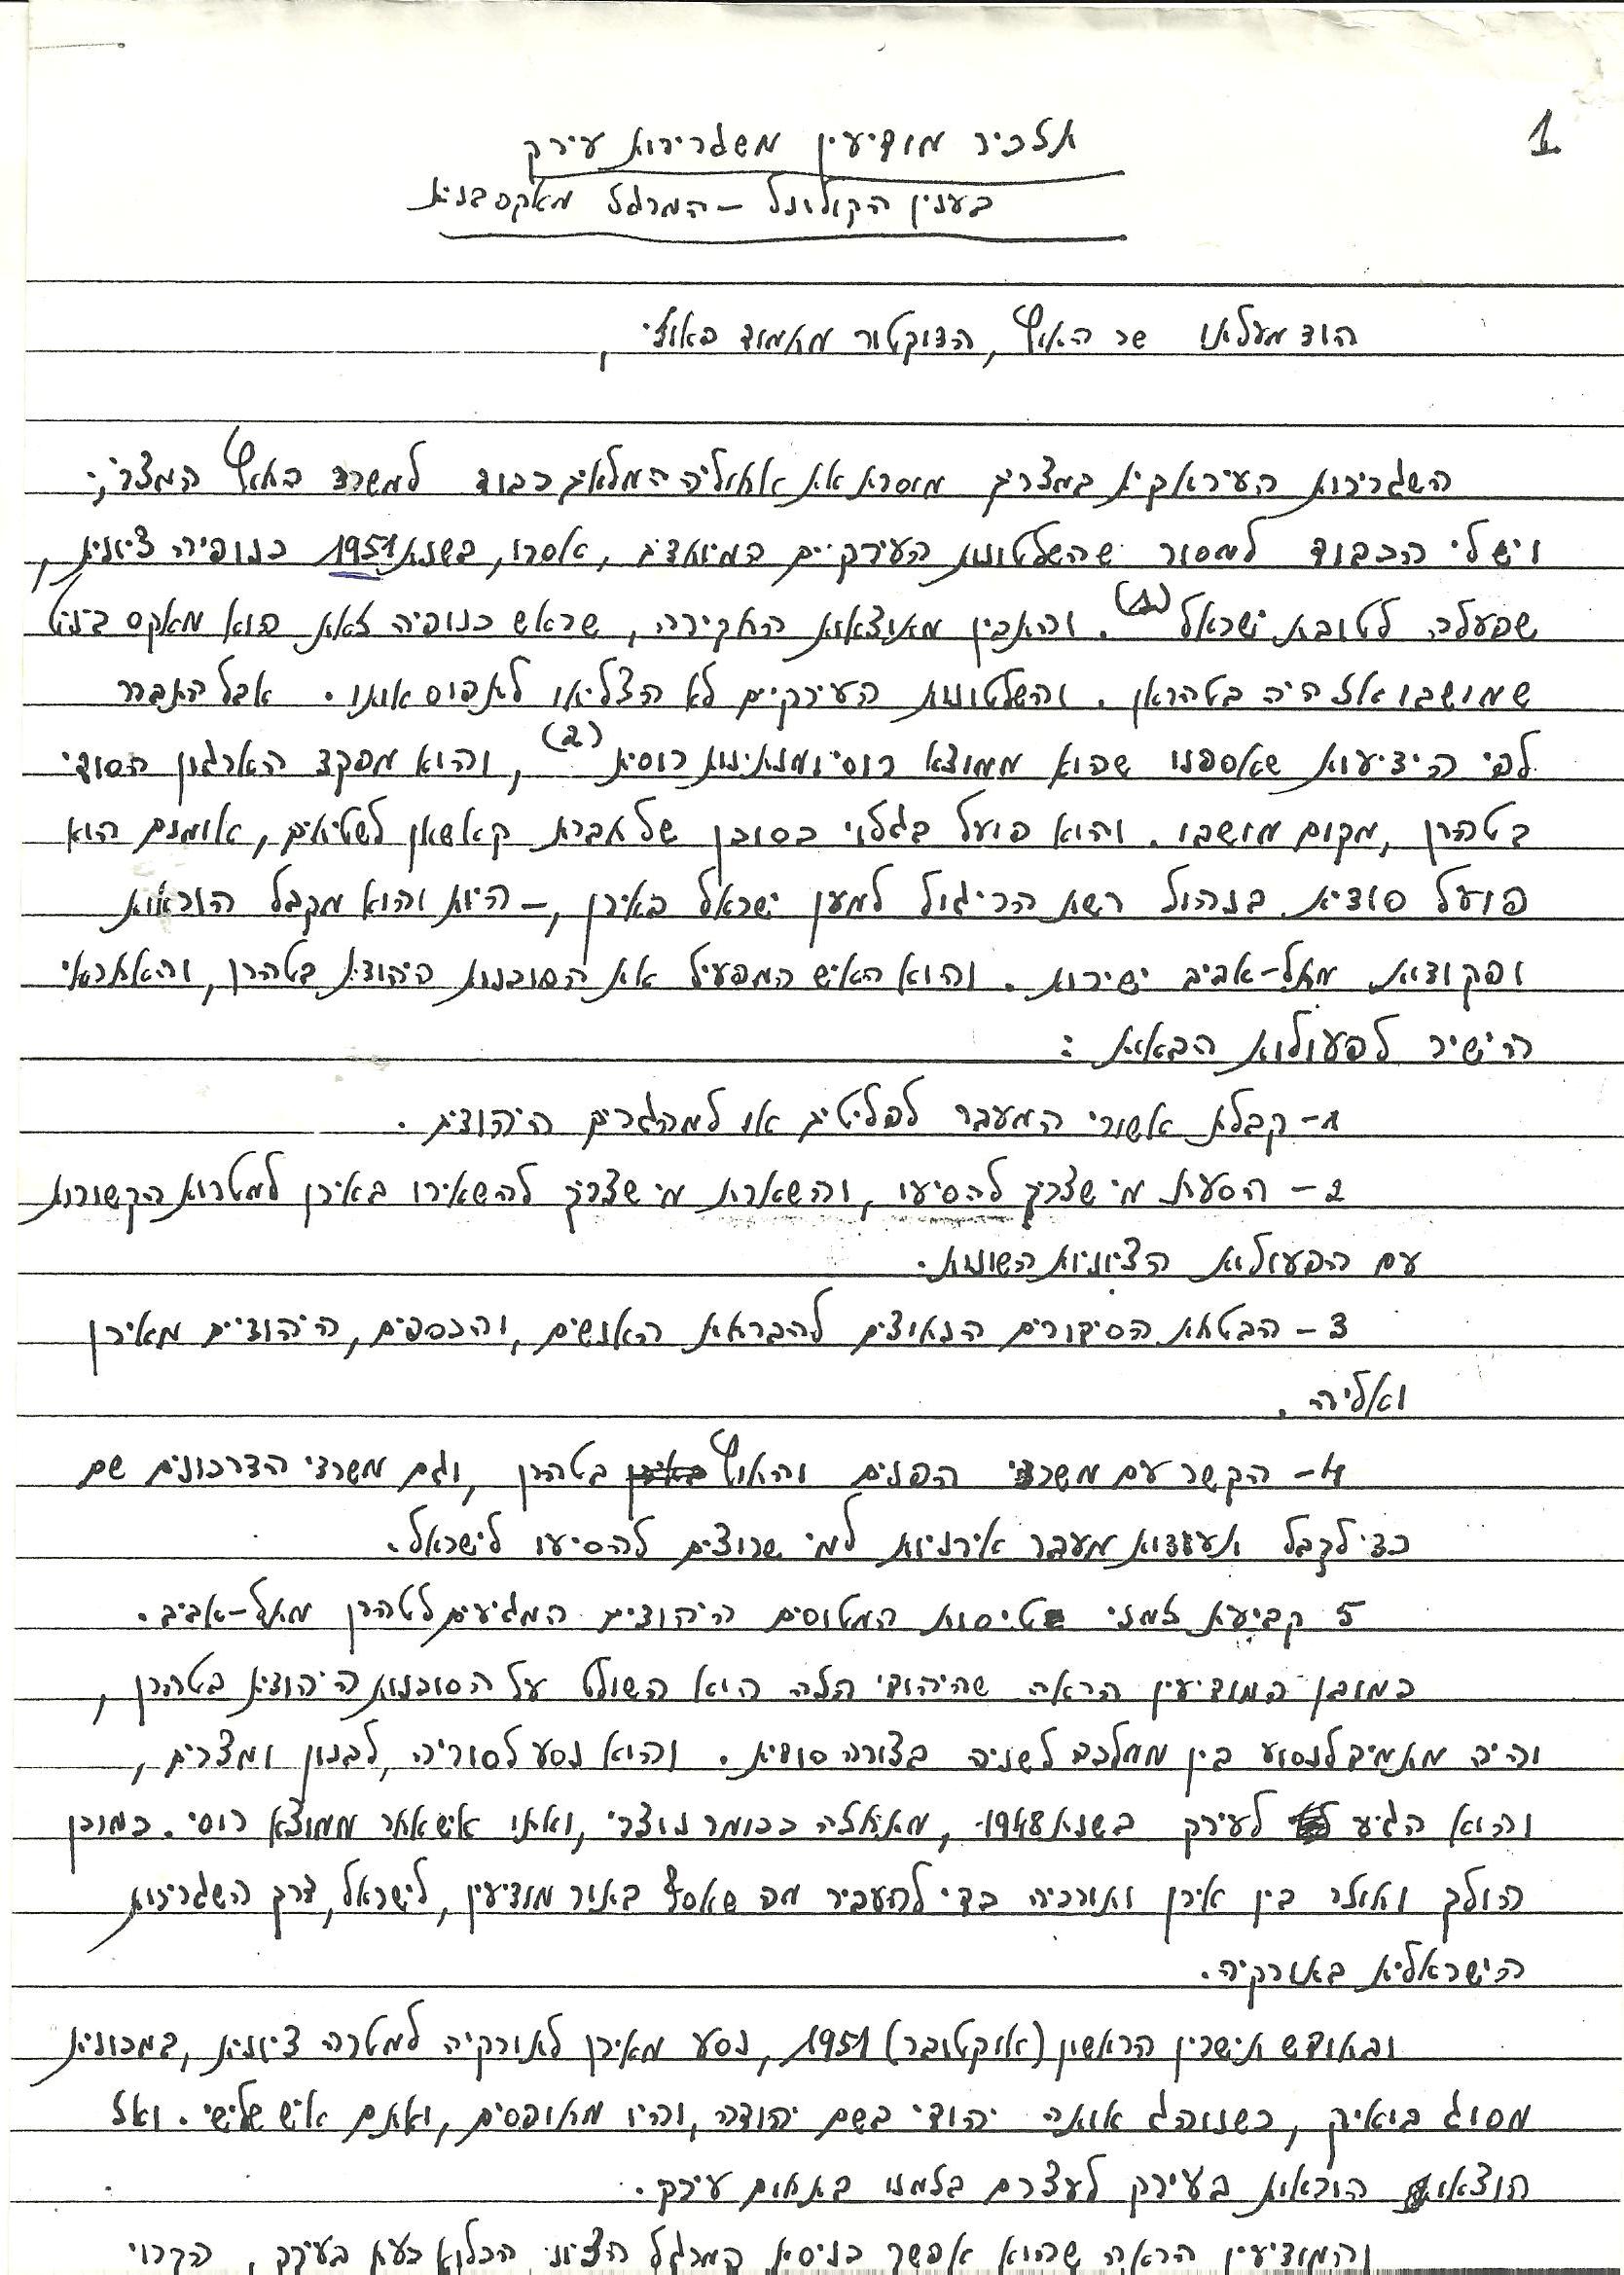 1
תזכיר מודיעין משגרירות עירק
בענין הקולונל - המרגל מאקס בנית
הוד מעלתו שר החוץ, הדוקטור מחמוד פאוזי,
השגרירות העיראקית במצרים מוסרת את איחוליה המלאים כבוד למשרד החוץ המצרי,
ויש לי הכבוד למסור שהשלטונות העירקיים המיוחדים, אסרו, בשנת 1951 כנופיה ציונית,
שפעלה לטובת ישראל (1). והתבין מתוצאות החקירה, שראש כנופיה זאת הוא מאקס בינט
שמושבו אז היה בטהראן. והשלטונות העירקיים לא הצליחו לתפוס אותו. אבל התברר
לפי הידיעות שאספנו שהוא ממוצא רוסי ומנתינות רוסית (2), והוא מפקד הארגון הסודי
בטהרן, מקום מושבו. והוא פועל בגלוי כסוכן של חברת קאשאן לשטיחים, אומנם הוא
פועל סודית בנהול רשת הריגול למען ישראל באירן, - היות והוא מקבל הוראות
ופקודות מתל-אביב ישירות. והוא האיש המפעיל את הסוכנות היהודית בטהרן, והאחראי
הישיר לפעולות הבאות :
1- קבלת אשורי המעבר לפליטים או למהגרים היהודים.
2- הסעת מי שצריך להסיעו, והשארת מי שצריך להשאירו באירן למטרות הקשורות
עם הפעולות הציוניות השונות.
3- הבטחת הסידורים הנחוצים להברחת האנשים, והכספים, היהודיים מאירן
ואליה.
4- הקשר עם משרדי הפנים והחוץ בטהרן, וגם משרדי הדרכונים שם
כדי לקבל תעודות מעבר אירניות למי שרוצים להסיעו לישראל.
5 קביעת זמני טיסות המטוסים היהודים המגיעים לטהרן מתל-אביב.
כמובן המודיעין הראה שהיהודי הלה הוא השולט על הסוכנות היהודית בטהרן,
והיה מתמיד לנסוע בין ממלכה לשניה בצורה סודית. והוא נסע לסוריה, לבנון ומצרים,
והוא הגיע לעירק בשנת 1948, מתחזה ככומר נוצרי, ואתו איש אחר ממוצא רוסי. כמובן
הולך וחוזר בין אירן ותורכיה כדי להעביר מה שאסף בתור מודיעין, לישראל, דרך השגרירות
הישראלית בתורקיה.
ובחודש תישרין הראשון (אוקטובר) 1951, נסע מאירן לתורקיה למטרה ציונית, במכונית
מסוג ביואיק, כשנוהג אותה יהודי בשם יהודה, והיו מחופסים, ואתם איש שלישי. ואז
הוצאות הוראות בעירק לעצרם בזמנו בתחום עירק.
והמודיעין הראה שהוא אפשר כניסת המרגל הציוני הכלוא כעת בעירק, הקרוי